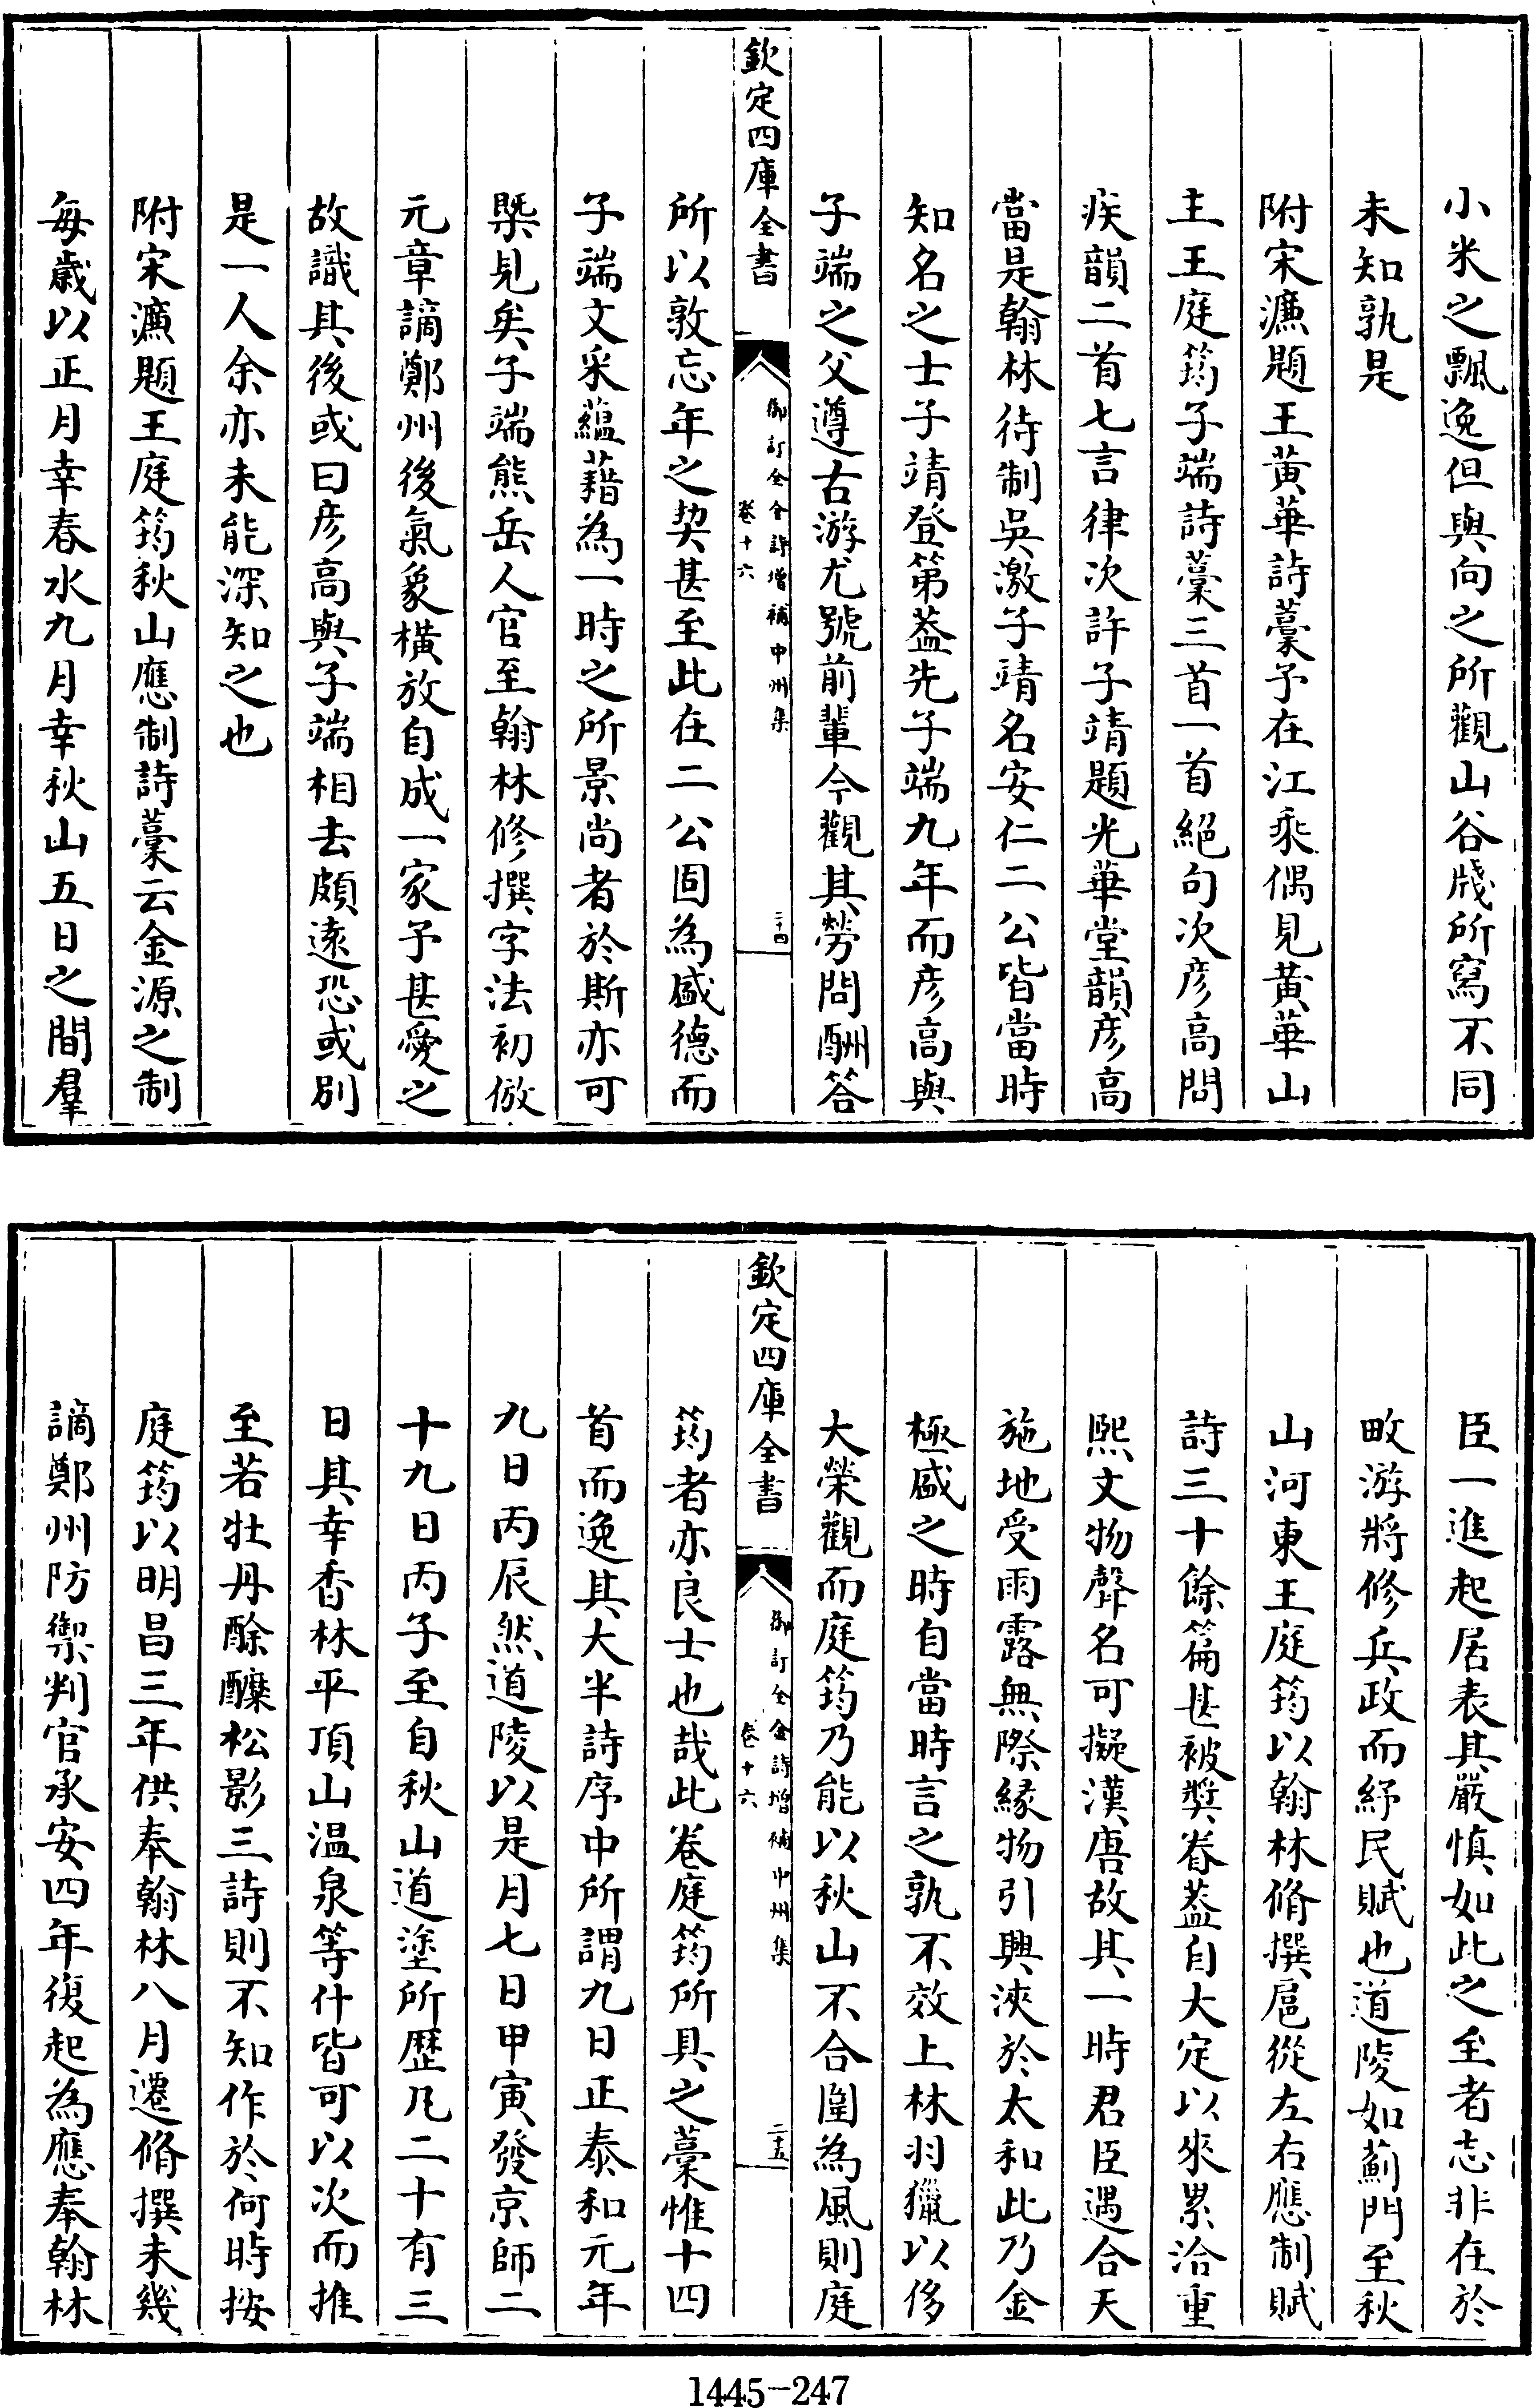 小米之飄逸但與向之所觀山谷牋所寫不同
未知孰是
附宋濂題王黃華詩藁予在江乘偶見黃華山
主王庭筠子端詩藁三首一首絕句次彥高問
疾韻二首七言律次許子靖題光華堂韻彥高
當是翰林待制吳激子靖名安仁二公皆當時
知名之士子靖登第葢先子端九年而彥高與
子端之父遵古游尤號前輩今觀其勞問酬答
欽定四庫全書
御訂全金詩增補中州集
卷十六
二十四
所以敦忘年之契甚至此在二公固為盛德而
子端文采蘊藉為一時之所景尚者於斯亦可
槩見矣子端熊岳人官至翰林修撰字法初倣
元章謫鄭州後氣象橫放自成一家予甚愛之
故識其後或曰彥高與子端相去頗遠恐或別
是一人余亦未能深知之也
附宋濂題王庭筠秋山應制詩藁云金源之制
每歲以正月幸春水九月幸秋山五日之間羣
臣一進起居表其嚴慎如此之至者志非在於
畋游將修兵政而紓民賦也道陵如薊門至秋
山河東王庭筠以翰林脩撰扈從左右應制賦
詩三十餘篇甚被奬眷葢自大定以來累洽重
熙文物聲名可擬漢唐故其一時君臣遇合天
施地受雨露無際緣物引興浹於太和此乃金
極盛之時自當時言之孰不效上林羽獵以侈
大榮觀而庭筠乃能以秋山不合圍為風則庭
欽定四庫全書
御訂全金詩增補中州集
卷十六
二十五
筠者亦良士也哉此卷庭筠所具之藁惟十四
首而逸其大半詩序中所謂九日正泰和元年
九日丙辰然道陵以是月七日甲寅發京師二
十九日丙子至自秋山道塗所歷凡二十有三
日其幸香林平頂山温泉等什皆可以次而推
至若牡丹酴醾松影三詩則不知作於何時按
庭筠以明昌三年供奉翰林八月遷脩撰未幾
謫鄭州防禦判官承安四年復起為應奉翰林
1445-247